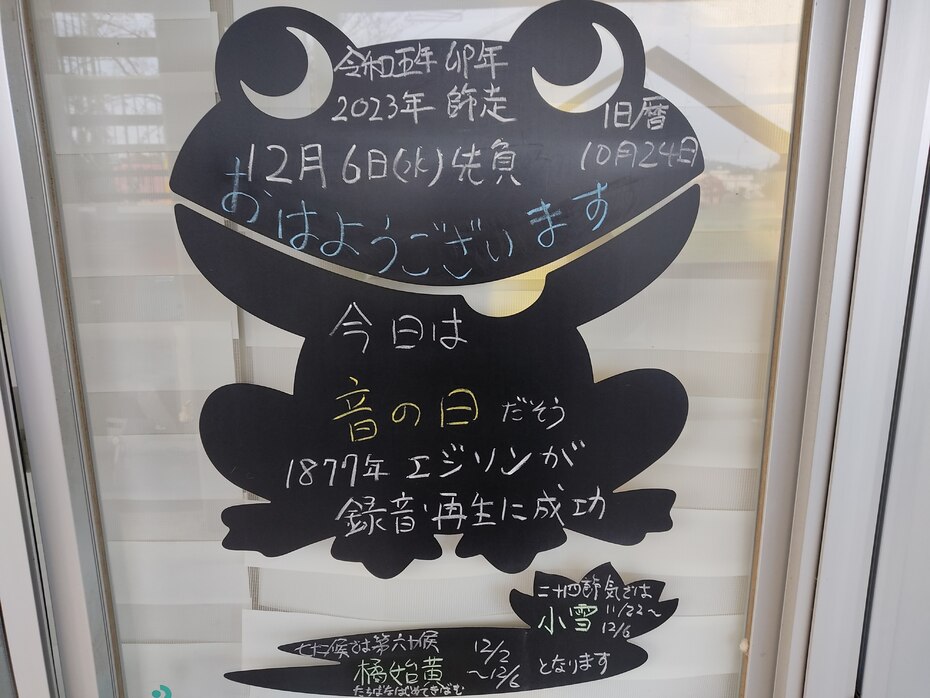 令和五年 卯年
2023年 師走
旧暦
10月24日
12月6日(水)先負
おはようございます
今日は
音の日だそう
1877年 エジソンが
録音・再生に成功
二十四節気では
小雪 11/22〜
12/6
七十二候では第六十候 12/2
橘始黄 〜12/6 となります
たちばなはじめてきばむ